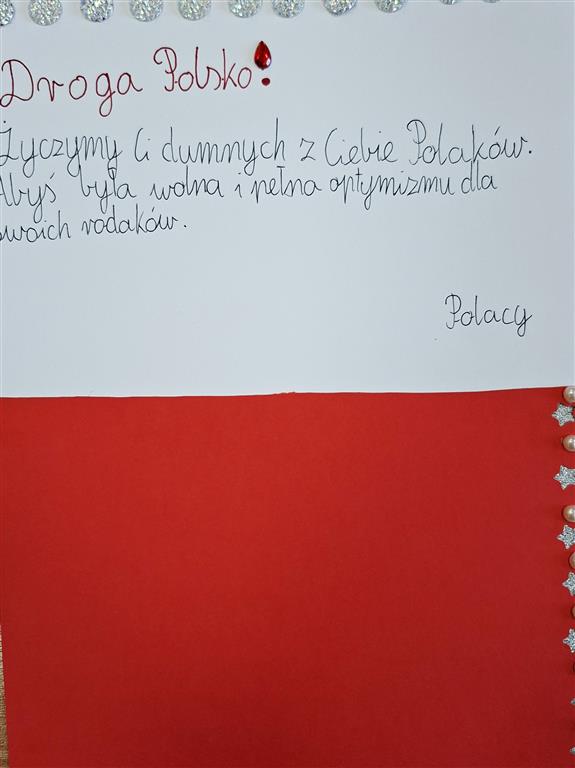 Droga Polsko!
Życzymy Ci dumnych z Ciebie Polaków.
Abyś była wolna i pełna optymizmu dla
swoich rodaków.
Polacy